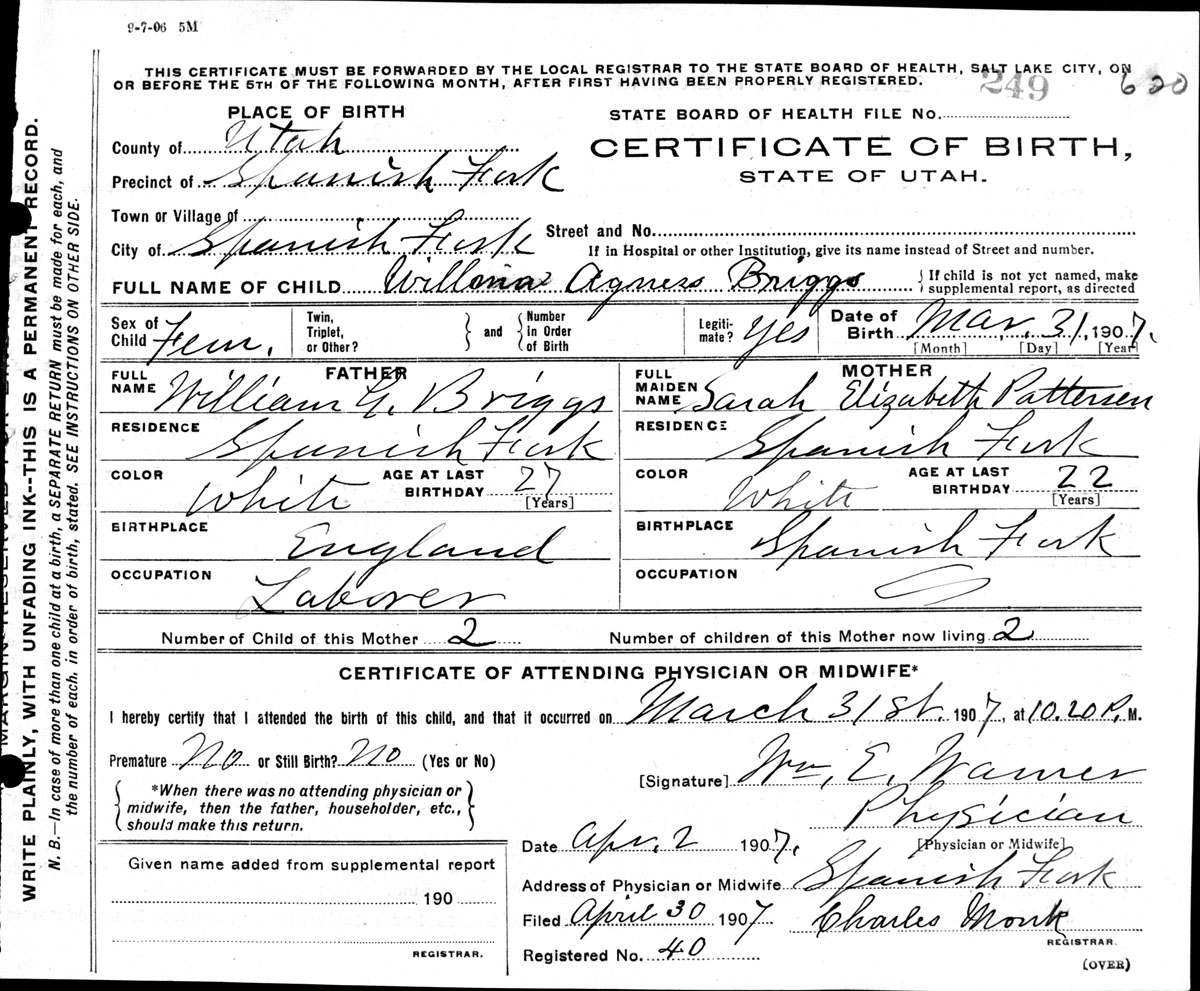 9-7-06 5M
THIS CERTIFICATE MUST BE FORWARDED BY THE LOCAL REGISTRAR TO THE STATE BOARD OF HEALTH, SALT LAKE CITY, ON
OR BEFORE THE 5TH OF THE FOLLOWING MONTH, AFTER FIRST HAVING BEEN PROPERLY REGISTERED.
249 620
PLACE OF BIRTH
STATE BOARD OF HEALTH FILE No.
County of Utah
CERTIFICATE OF BIRTH,
STATE OF UTAH.
Precinct of Spanish Fork
Town or Village of
Street and No.
City of Spanish Fork
If in Hospital or other Institution, give its name instead of Street and number.
FULL NAME OF CHILD Willmia Agness Briggs
{ If child is not yet named, make
supplemental report, as directed
Sex of Child Fem.
Twin, Triplet, or Other? } and { Number in Order of Birth
Legiti-mate? Yes
Date of Birth Mar. 31, 1907.
[Month] [Day] [Year]
FATHER
FULL NAME William G. Briggs
RESIDENCE Spanish Fork
COLOR White AGE AT LAST BIRTHDAY 27 [Years]
BIRTHPLACE England
OCCUPATION Laborer
MOTHER
FULL MAIDEN NAME Sarah Elizabeth Pattersen
RESIDENCE Spanish Fork
COLOR White AGE AT LAST BIRTHDAY 22 [Years]
BIRTHPLACE Spanish Fork
OCCUPATION
Number of Child of this Mother 2 Number of children of this Mother now living 2
CERTIFICATE OF ATTENDING PHYSICIAN OR MIDWIFE*
I hereby certify that I attended the birth of this child, and that it occurred on March 31st. 1907, at 10.20 P. M.
Premature No or Still Birth? No (Yes or No)
[Signature] Wm. E. Warner
*When there was no attending physician or
midwife, then the father, householder, etc.,
should make this return.
Physician
[Physician or Midwife]
Date Apr. 2 1907.
Address of Physician or Midwife Spanish Fork
Filed April 30 1907 Charles Monk
REGISTRAR.
Registered No. 40
(OVER)
Given name added from supplemental report
190
REGISTRAR.
WRITE PLAINLY, WITH UNFADING INK--THIS IS A PERMANENT RECORD.
N. B.—In case of more than one child at a birth, a SEPARATE RETURN must be made for each, and
the number of each, in order of birth, stated. SEE INSTRUCTIONS ON OTHER SIDE.